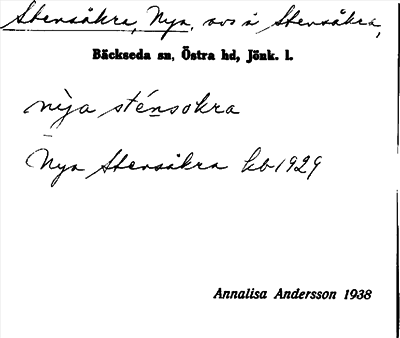 Stensåkra, Nya, avs å Stensåkra,
Bäckseda sn, Östra hd, Jönk. l.
nỳja sténsokra
Nya Stensåkra kb 1929
Annalisa Andersson 1938